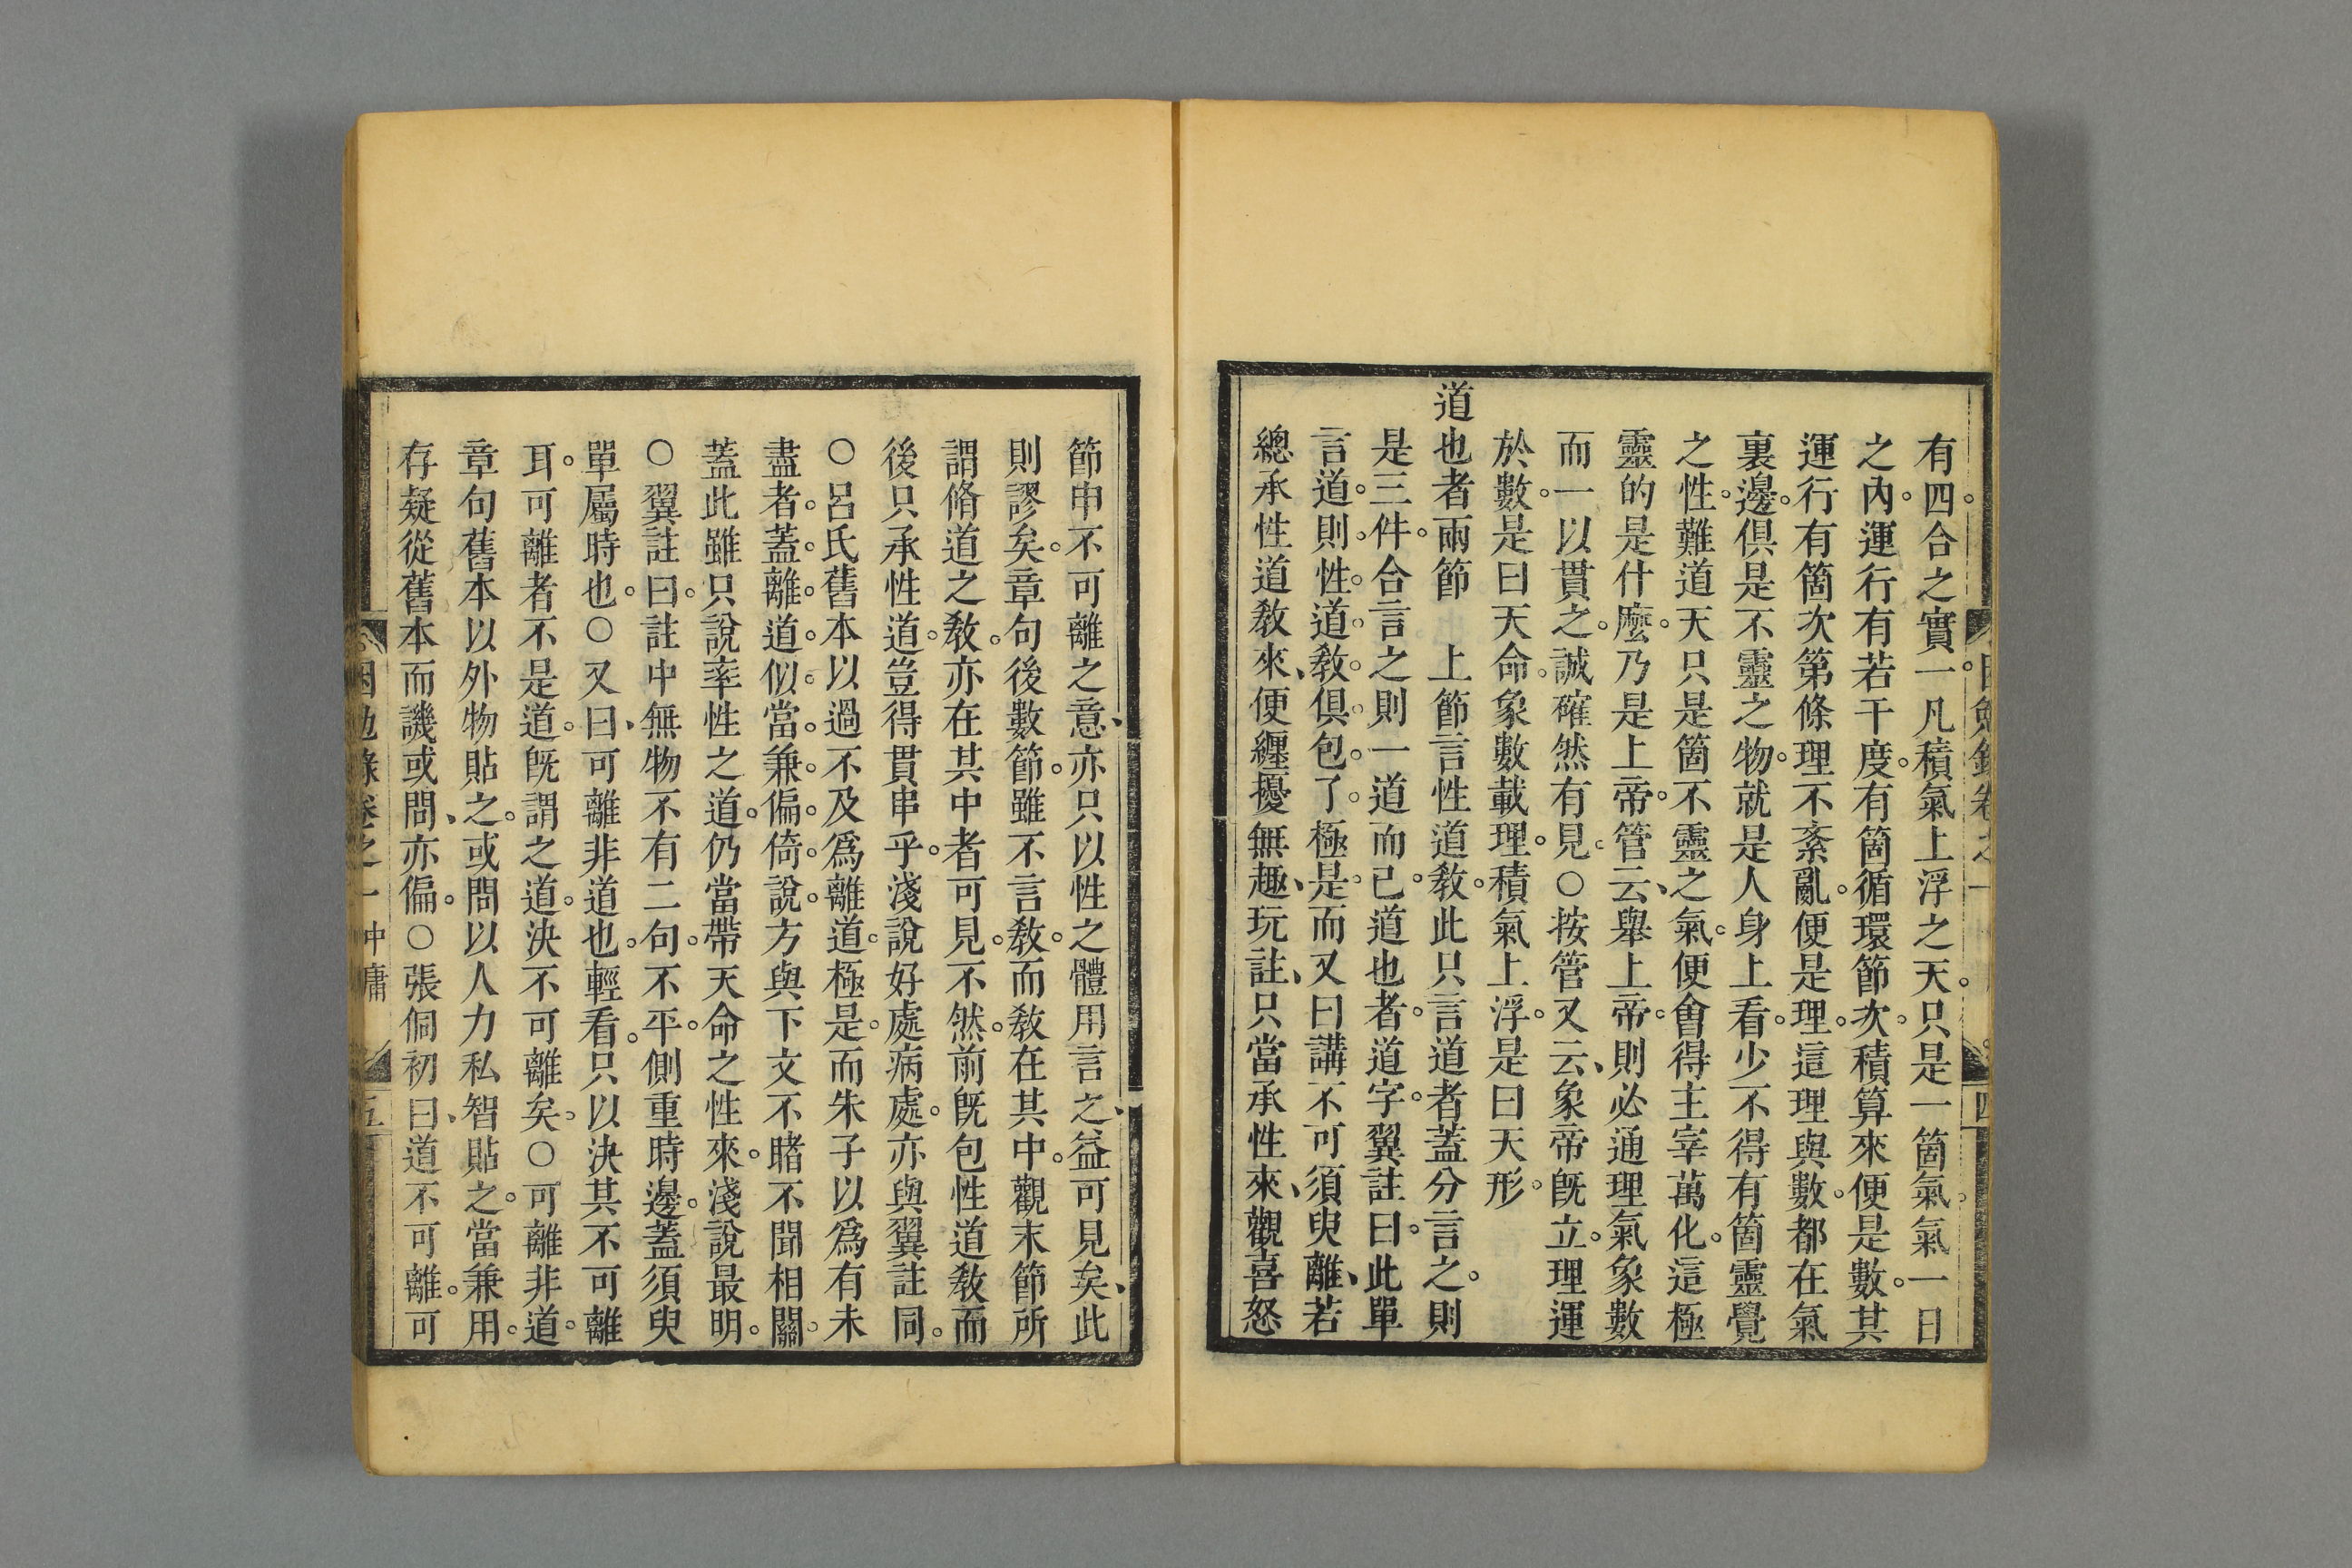 有四合之實一凡積氣上浮之天。只是一箇氣。氣一日
之內。運行有若干度。有箇循環節次。積算來便是數。其
運行有箇次第條理不紊亂。便是理。這理與數。都在氣
裏邊。俱是不靈之物。就是人身上看。少不得有箇靈覺
之性。難道天只是箇不靈之氣。便會得主宰萬化。這極
靈的是什麼。乃是上帝。管云、舉上帝。則必通理氣象數
而一以貫之。誠確然有見。○按管又云、象帝旣立。理運
於數。是曰天命。象數載理。積氣上浮。是曰天形。
道也者兩節　上節言性道敎。此只言道者蓋分言之。則
是三件。合言之則一道而已。道也者。道字。翼註曰。此單
言道。則性道敎俱包了。極是。而又曰講不可須臾離、若
總承性道敎來、便纏擾無趣、玩註、只當承性來、觀喜怒
節申不可離之意、亦只以性之體用言之、益可見矣、此
則謬矣。章句後數節。雖不言敎。而敎在其中。觀末節所
謂脩道之敎。亦在其中者可見。不然。前旣包性道敎而
後只承性道。豈得貫串乎。淺說好處病處。亦與翼註同。
○呂氏舊本以過不及爲離道。極是。而朱子以爲有未
盡者。蓋離道似當兼偏倚說。方與下文不睹不聞相關。
蓋此雖只說率性之道。仍當帶天命之性來。淺說最明。
○翼註曰。註中無物不有二句。不平。側重時邊。蓋須臾
單屬時也。○又曰、可離非道也。輕看。只以決其不可離
耳。可離者不是道。旣謂之道。決不可離矣。○可離非道。
章句舊本以外物貼之。或問以人力私智貼之。當兼用。
存疑從舊本而譏或問、亦偏。○張侗初曰、道不可離。可
困勉錄卷之一　中庸　五